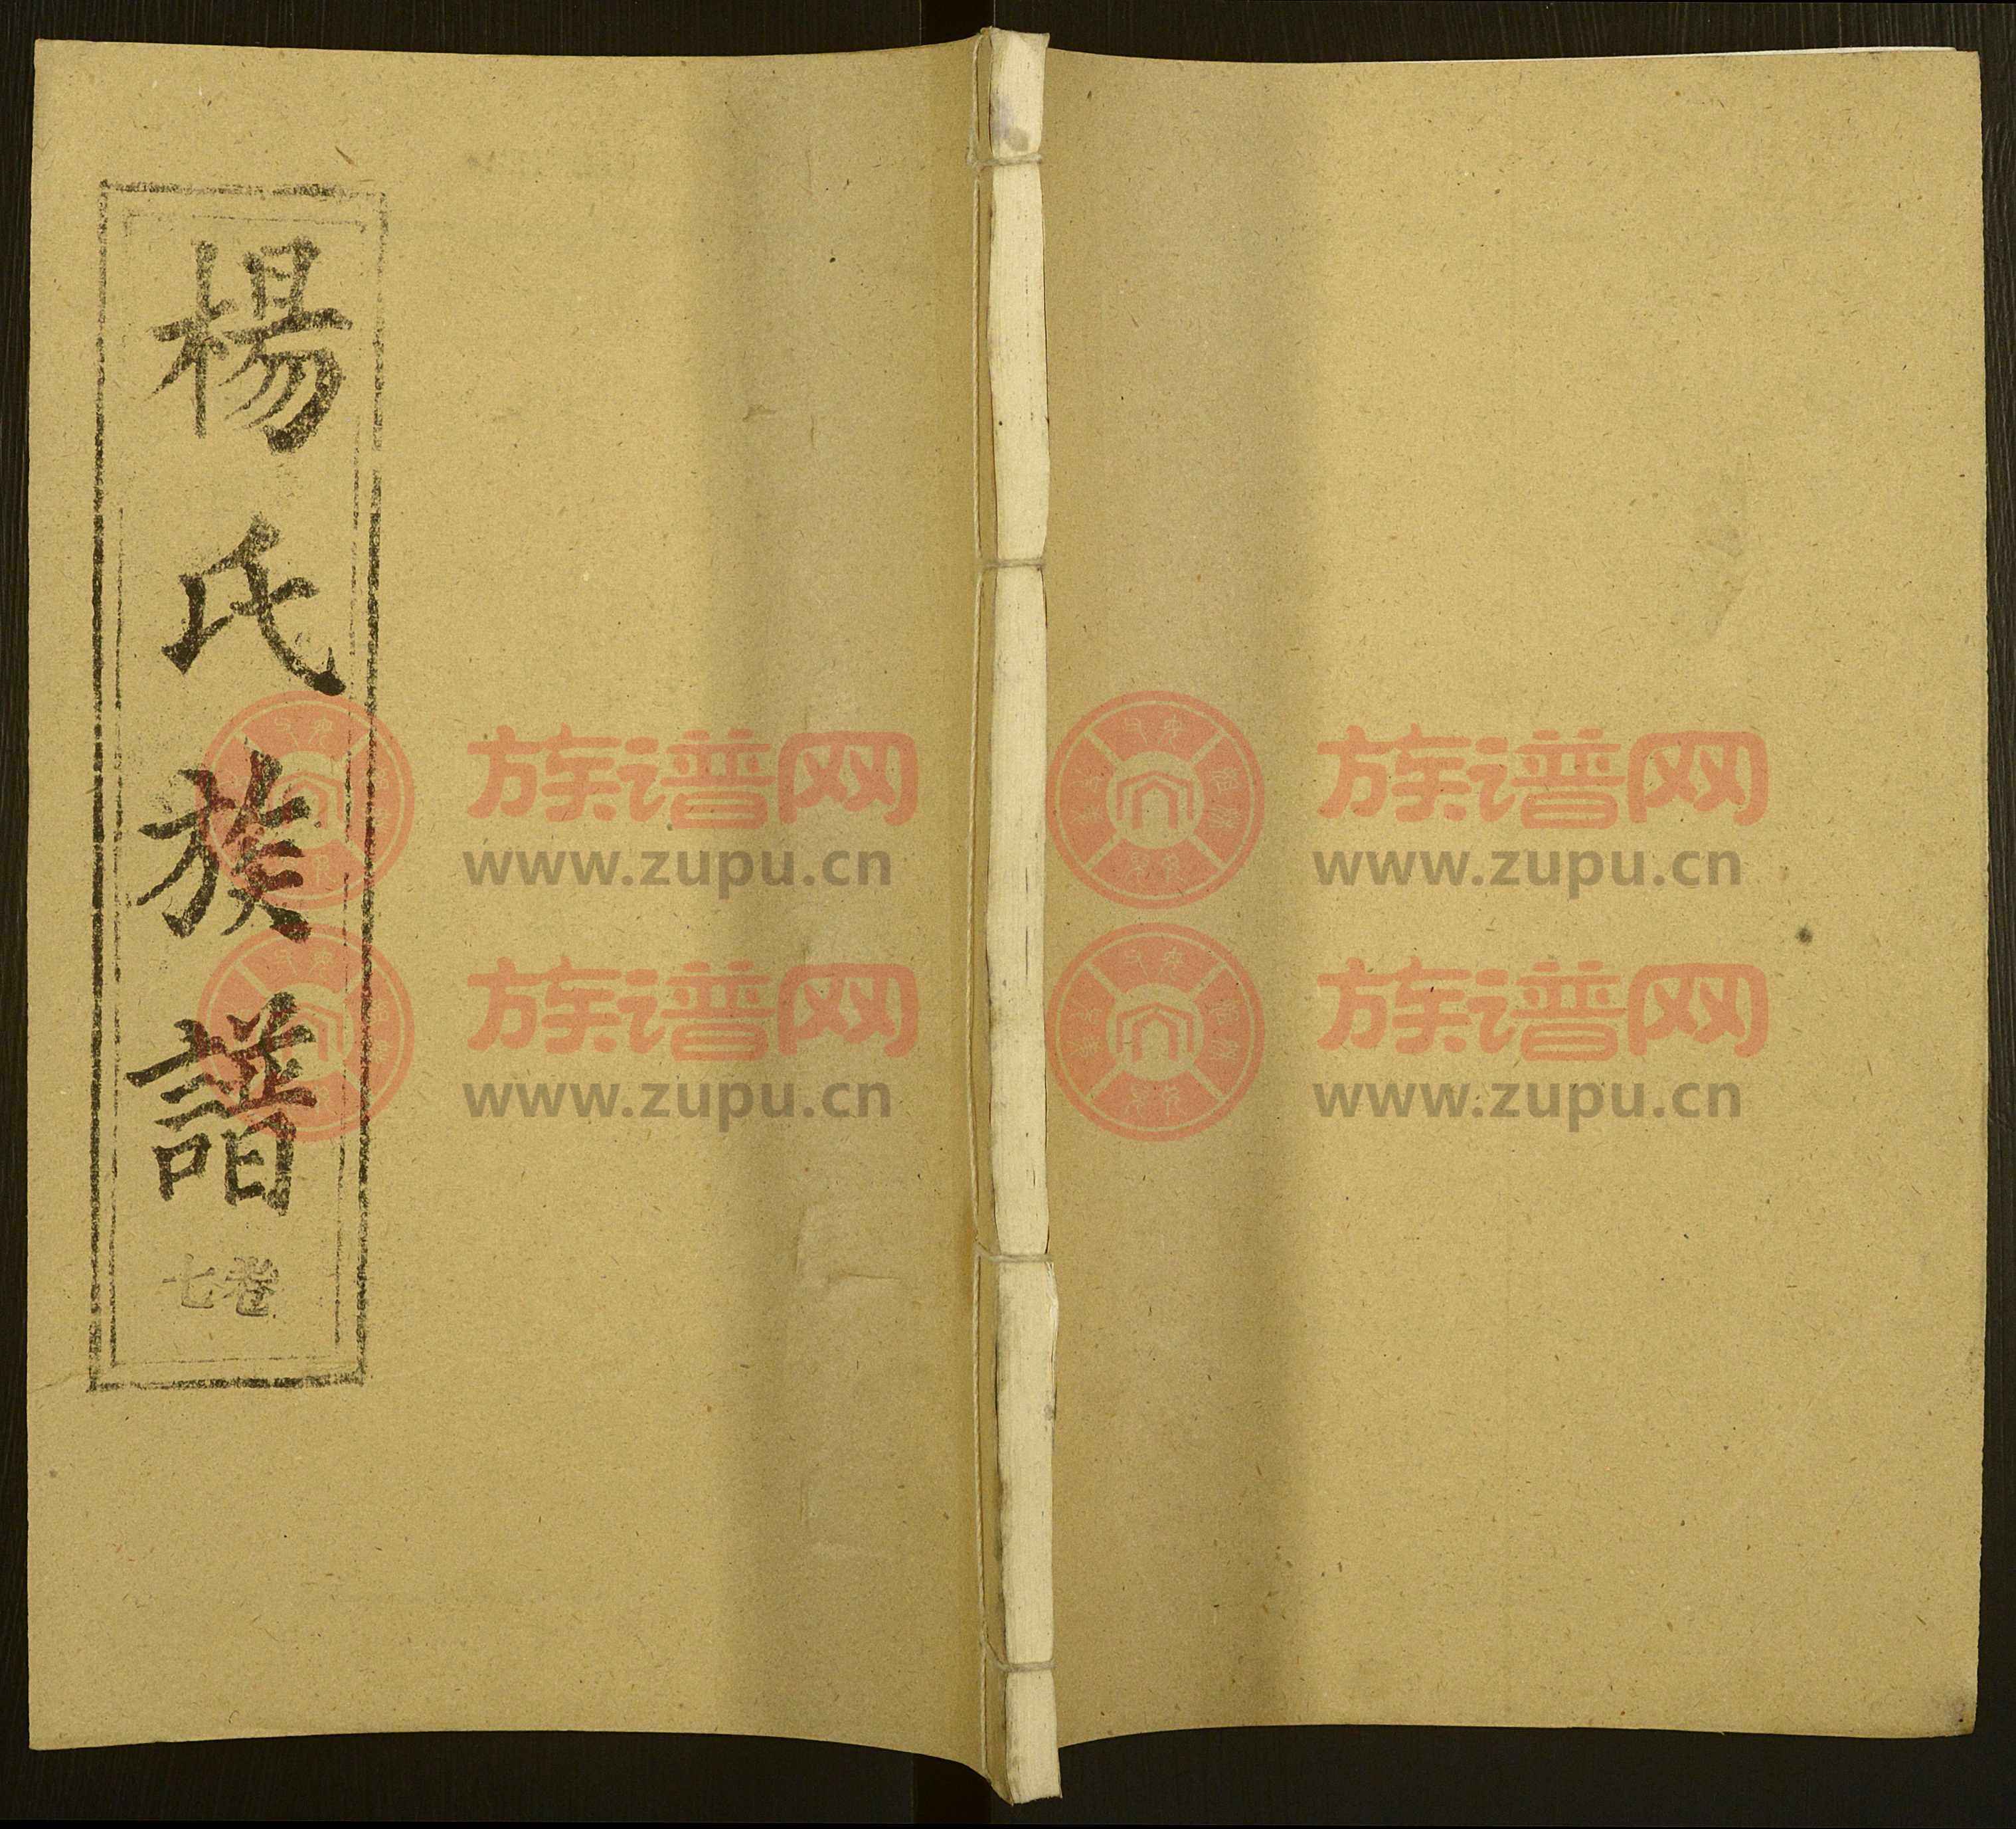 楊氏族譜
卷七
族谱网
www.zupu.cn
族谱网
www.zupu.cn
族谱网
www.zupu.cn
族谱网
www.zupu.cn